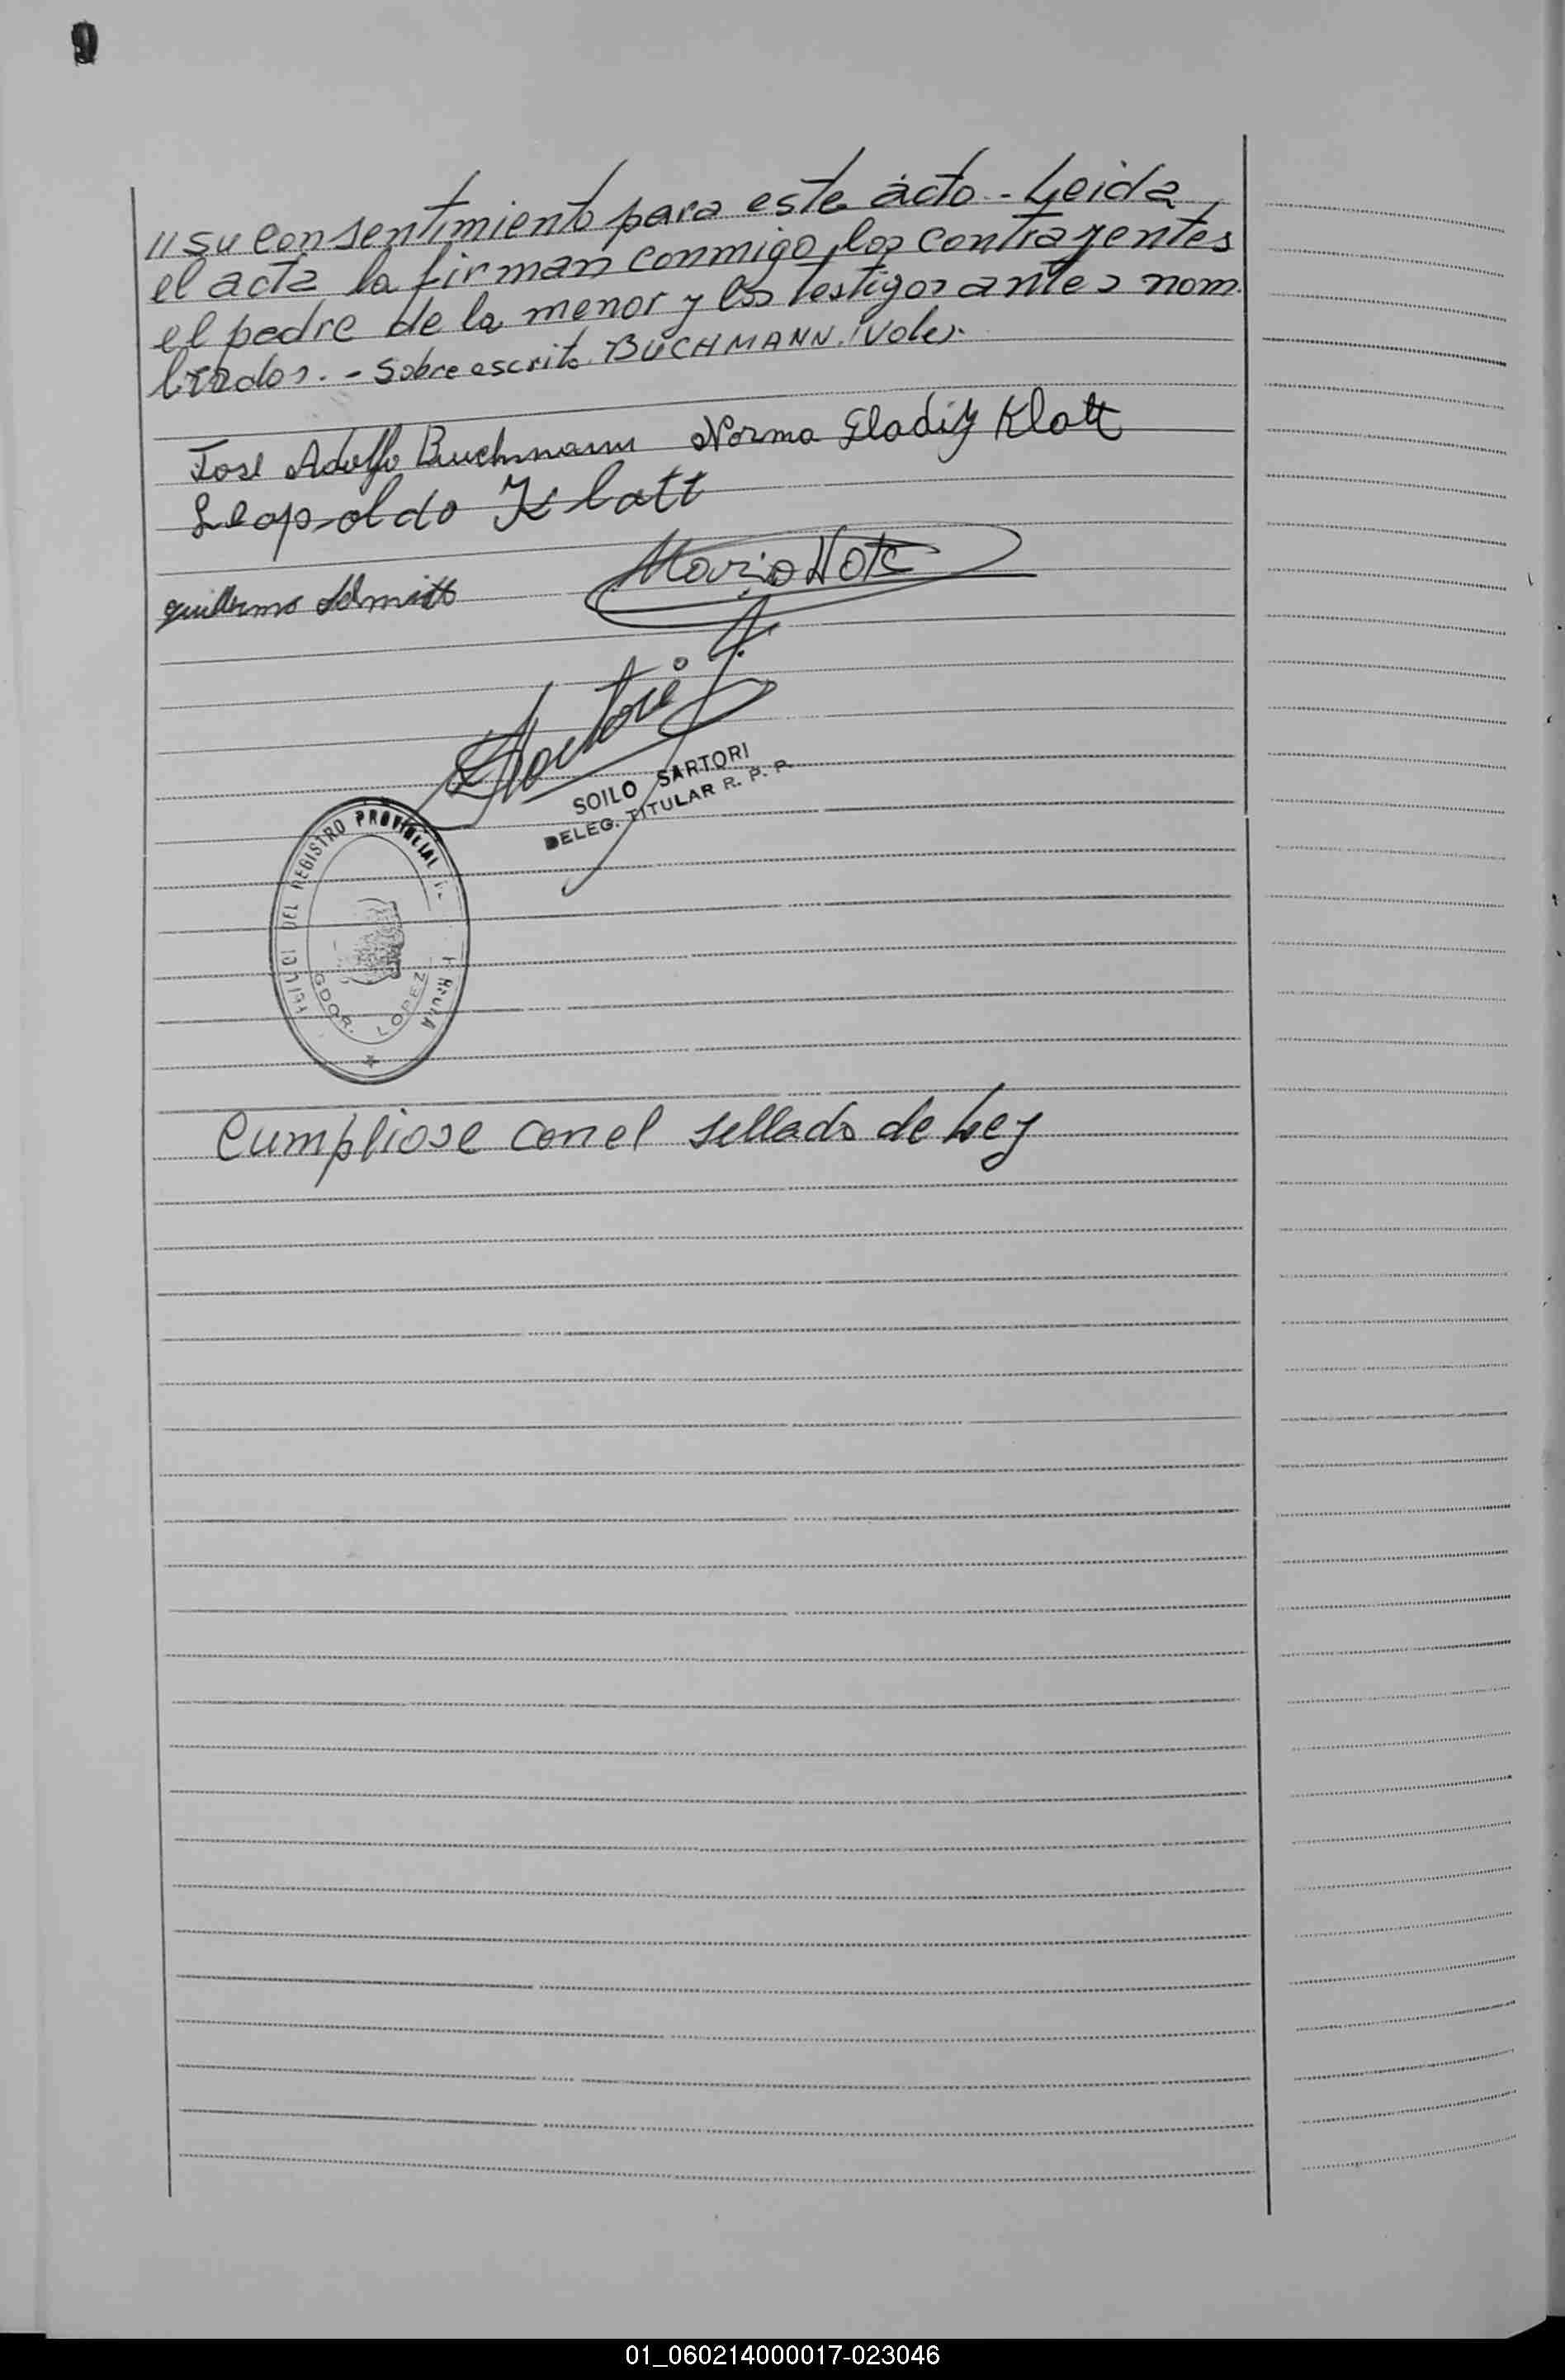 9
// su consentimiento para este acto - Leida
el acta la firman conmigo, los contrayentes
el padre de la menor y los testigos antes nom
brados. - Sobre escrito BUCHMANN. Vale.
José Adolfo Buchmann Norma Gladiz Klatt
Leopoldo Klatt
guillermo Schmidt Mario Hotz
Sartori
SOILO SARTORI
DELEG. TITULAR R. P. P.
DEL REGISTRO PROVINCIAL
GDOR. LOPEZ
Cumpliose con el sellado de Ley
01_060214000017-023046